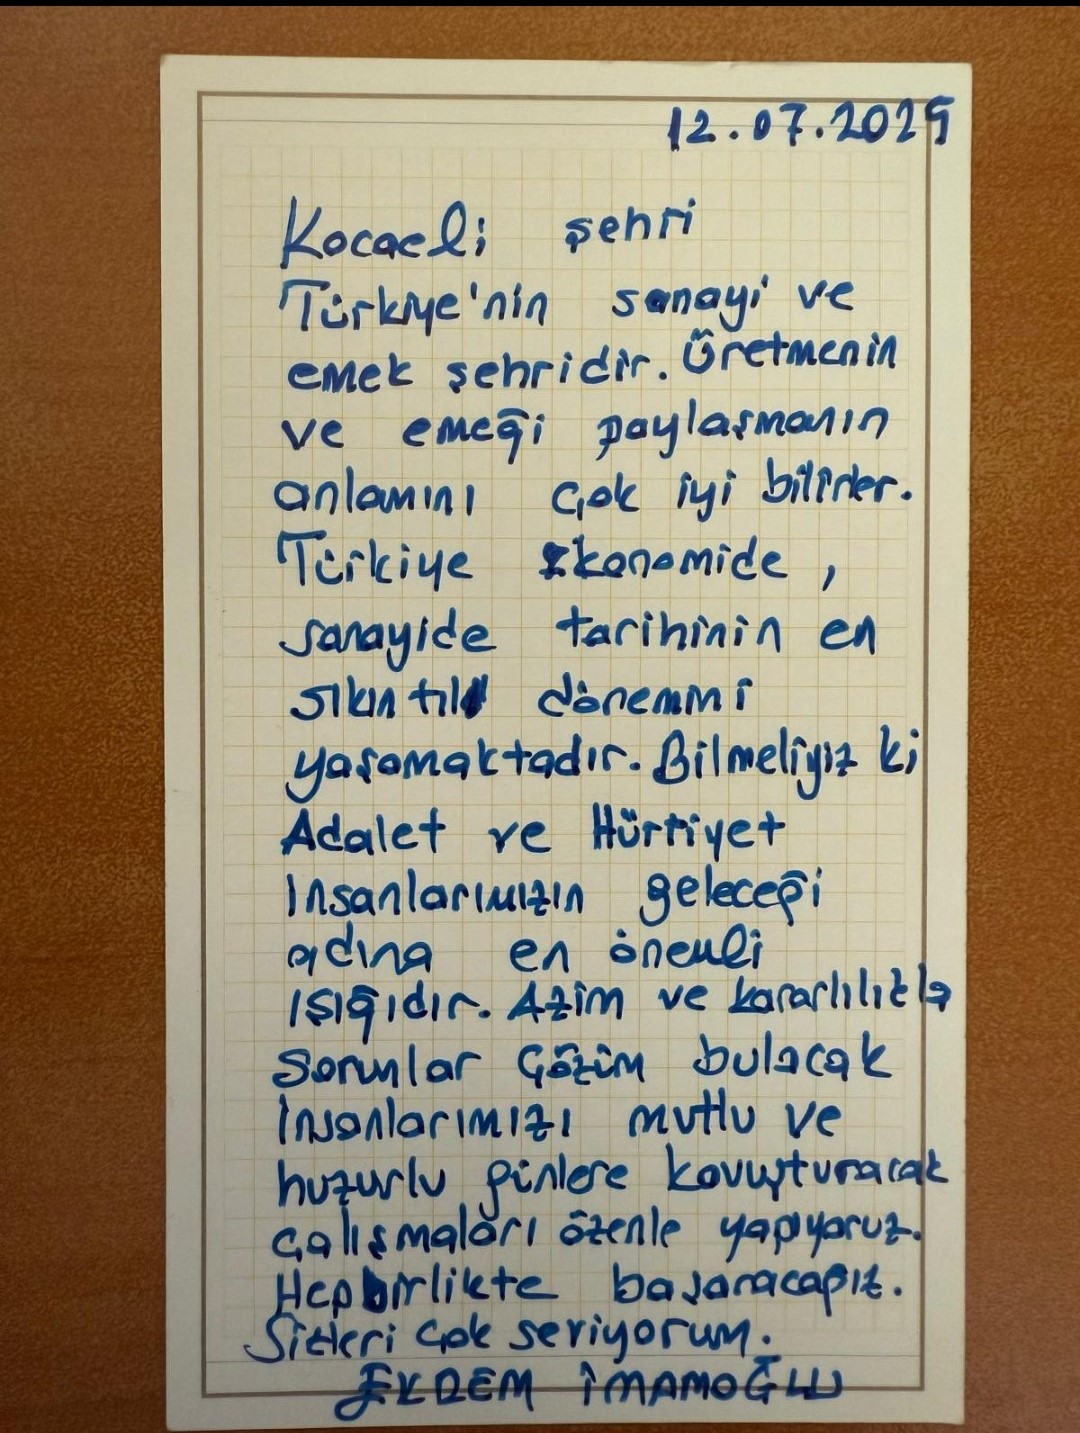 12.07.2025
Kocaeli şehri
Türkiye'nin sanayi ve
emek şehridir. Üretmenin
ve emeği paylaşmanın
anlamını çok iyi bilirler.
Türkiye ekonomide,
sanayide tarihinin en
sıkıntılı dönemini
yaşamaktadır. Bilmeliyiz ki
Adalet ve Hürriyet
insanlarımızın geleceği
adına en önemli
ışığıdır. Azim ve kararlılıkla
sorunlar çözüm bulacak
insanlarımızı mutlu ve
huzurlu günlere kavuşturacak
çalışmaları özenle yapıyoruz.
Hepbirlikte başaracağız.
Sizleri çok seviyorum.
EKREM İMAMOĞLU